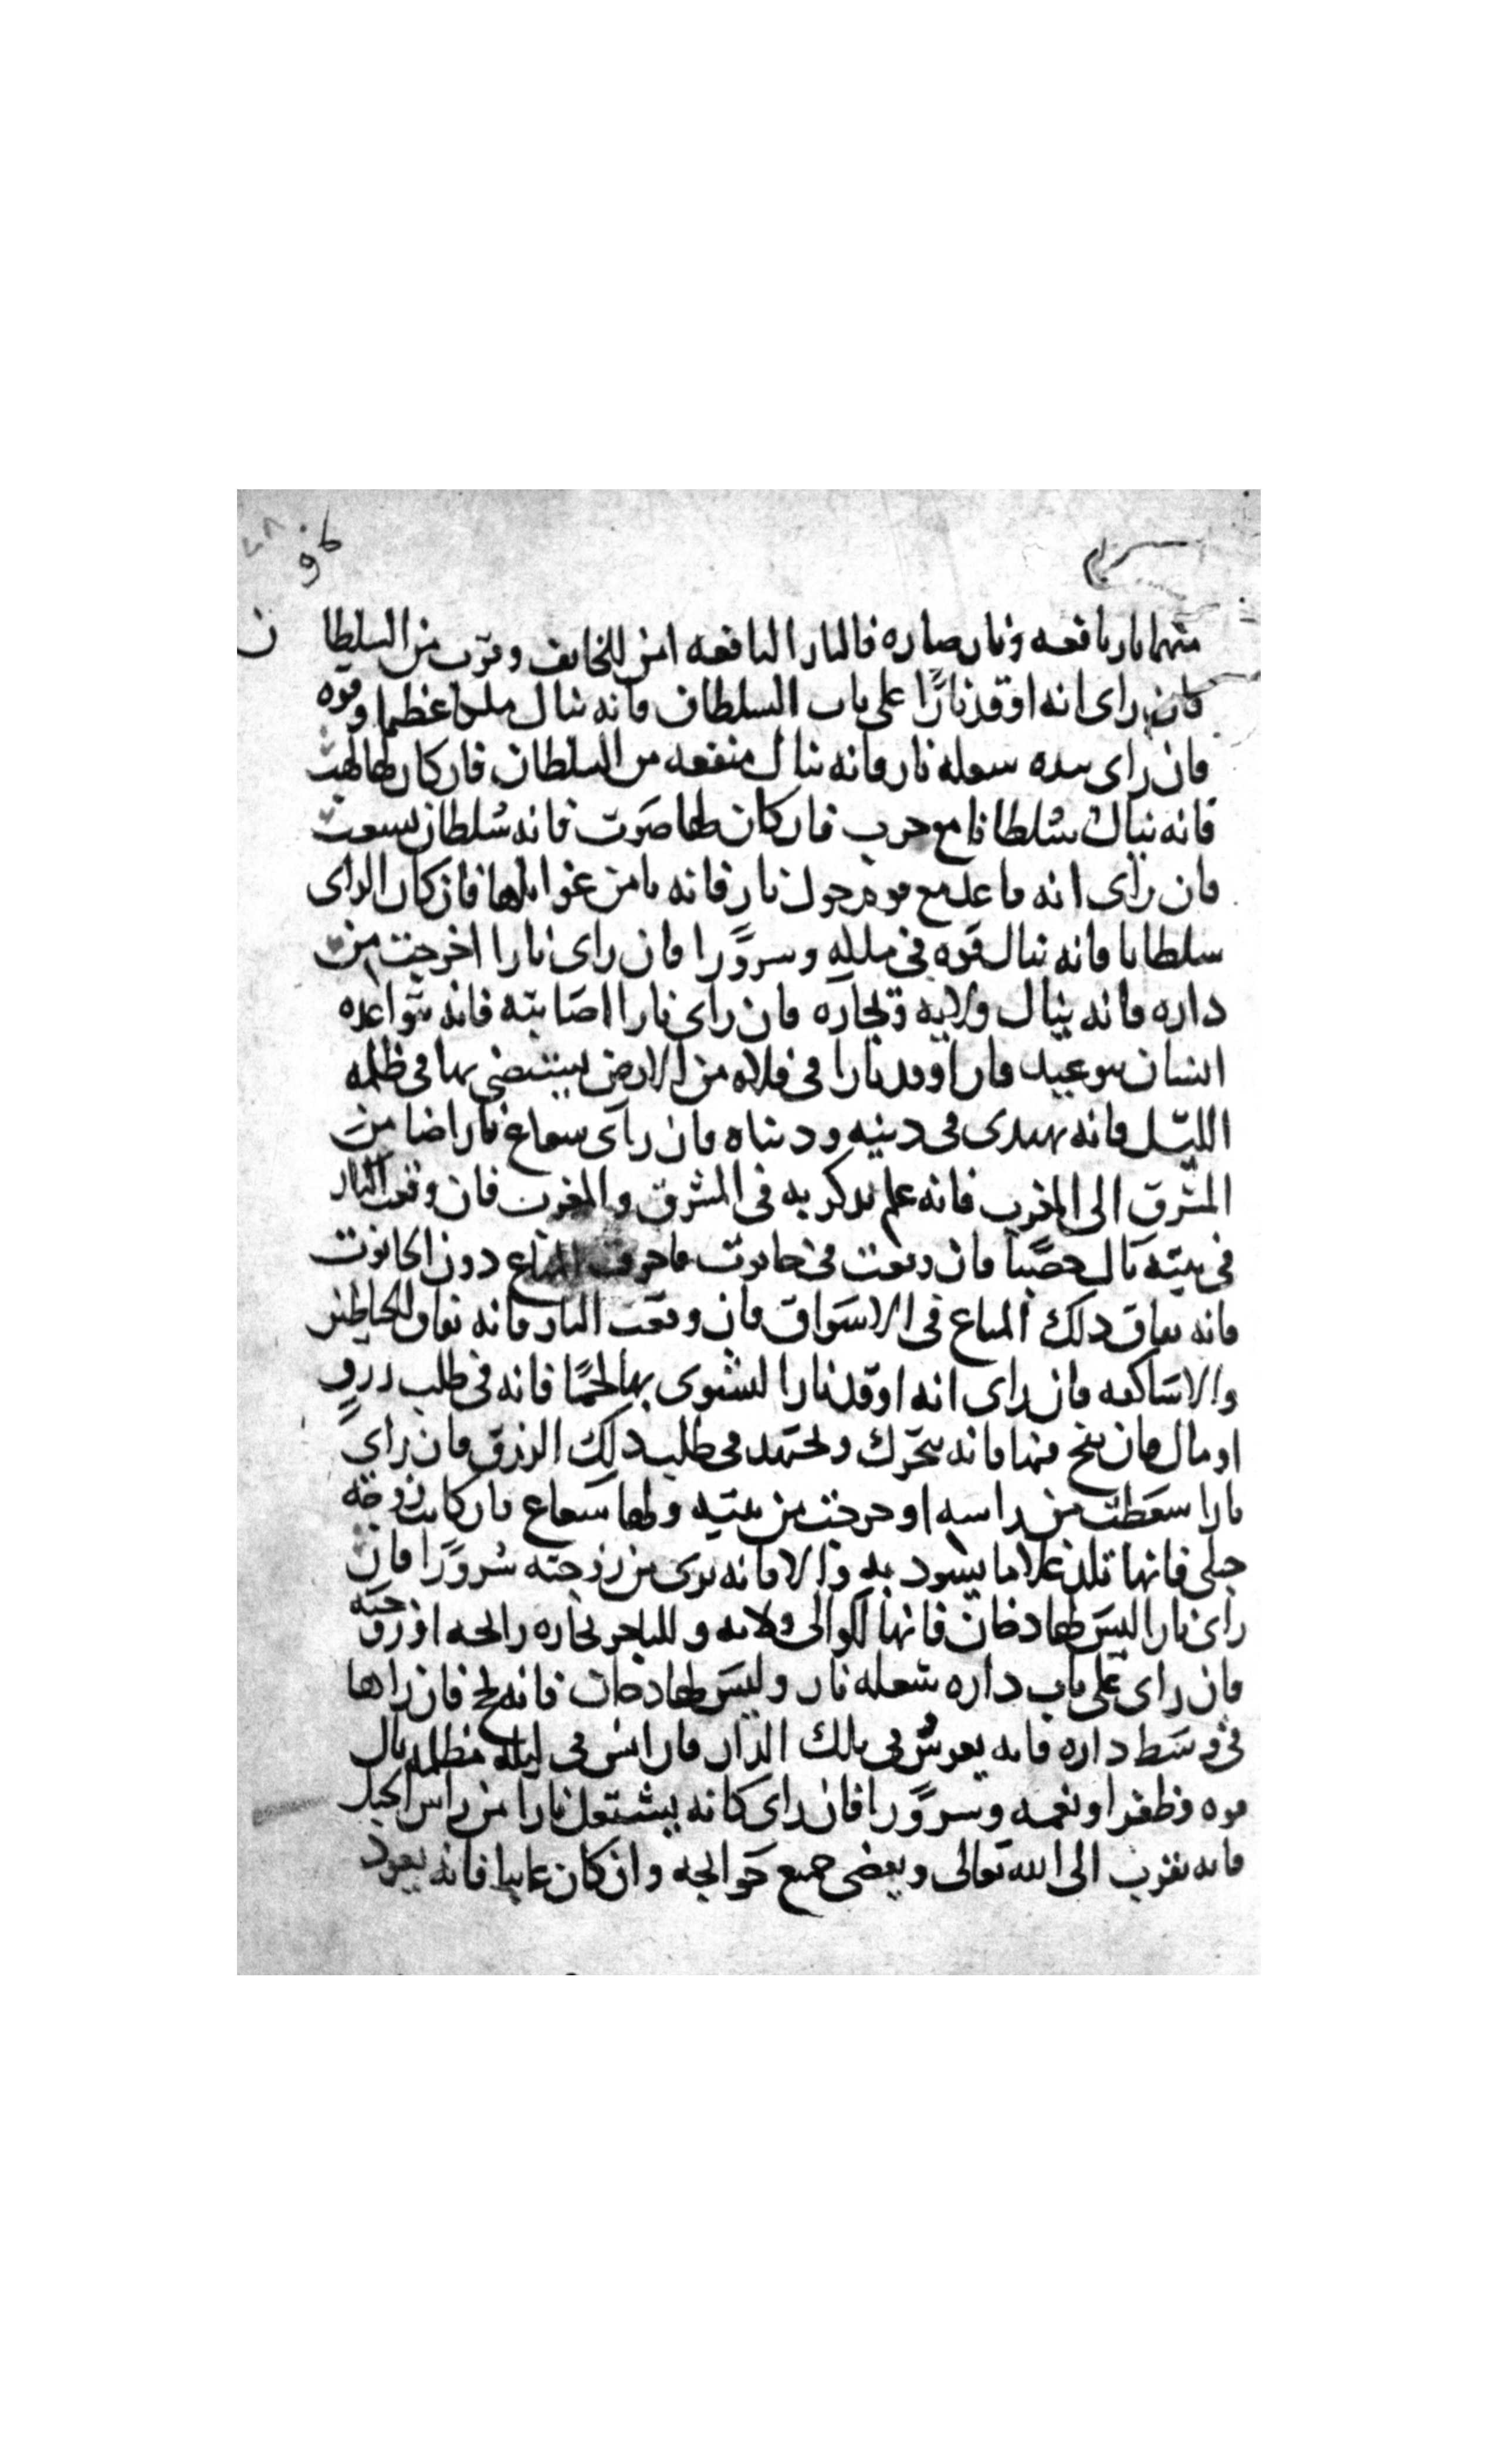 منهما نار نافعه ونار ضاره فالنار النافعه امن للخايف وقرب من السلطان
فان راى انه اوقد نارًا على باب السلطان فانه ينال ملكا عظيما وقوه
فان راى بيده شعله نار فانه ينال منفعه من السلطان فان كان لها لهب
فانه ينال سُلطانا مع حرب فان كان لها صَوت فانه سُلطان
فان راى انه قاعد مع قوم حول نار فانه يامن غوايلها فان كان الراى
سلطانا فانه ينال قوه فى ملكه وسرورًا فان راى نارا اخرجت من
داره فانه ينال ولايه وتجاره فان راى نارا اصَابته فانه يتواعده
انسان بوعيد فان اوقد نارا فى فلاه من الارض يستضى بها فى ظلمه
الليل فانه يهتدى فى دينه ودنياه فان راى شعاع نار اضا من
المشرق الى المغرب فانه علم يذكر به فى المشرق والمغرب فان وقعت النار
فى بيته نال خصبًا فان وقعت فى حانوت فاحرقت المتاع دون الحانوت
فانه نفاق ذلك المتاع فى الاسَواق فان وقعت النار فانه نفاق الخياطين
والاسَاكفه فان راى انه اوقد نارا ليشوى بها لحمًا فانه فى طلب رزق
او مال فان نفخ فيها فانه يتحرك ويجتهد فى طلب ذلك الرزق فان راى
نارا سقطت من راسه او خرجت من بيته ولها شعاع فان كانت زوجته
حبلى فانها تلد غلاما يسود به والا فانه يرى من زوجته سُرورًا فان
راى نارا ليسَ لها دخان فانها للوالى ولايه وللتاجر تجاره رابحه او زوجه
فان راى على باب داره شعله نار وليسَ لها دخان فانه يحج فان راها
فى وسَط داره فانه يعرس فى تلك الدار فان انس فى ليله مظلمه نال
قوه وظفرا ونعمه وسرورًا فان راى كانه يشتعل نارا من راس الجبل
فانه يتقرب الى الله تعالى ويقضى جميع حوايجه وان كان غايبا فانه يعود